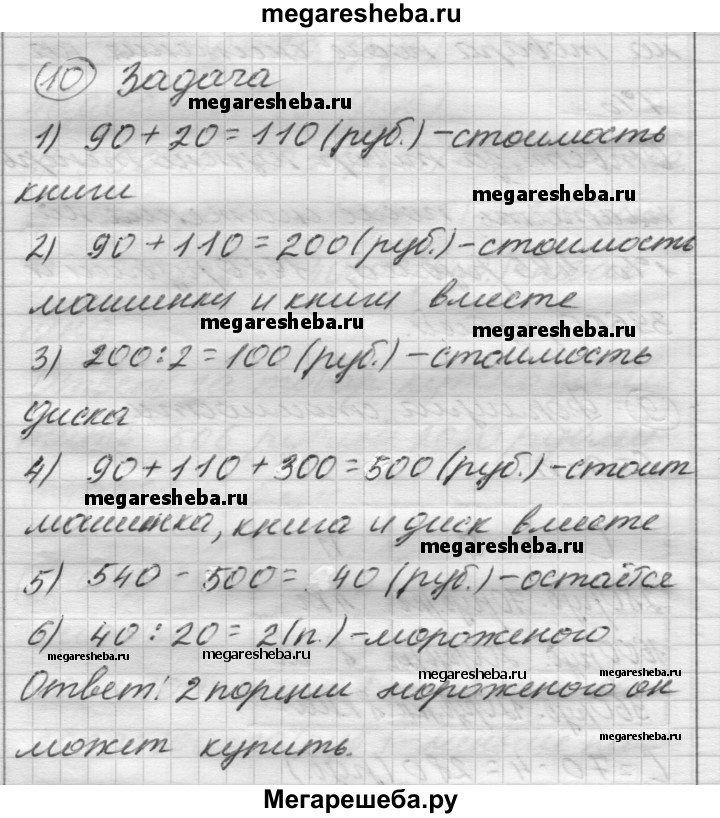 megaresheba.ru
10 Задача
megaresheba.ru
1) 90 + 20 = 110 (руб.) - стоимость
книги
megaresheba.ru
2) 90 + 110 = 200 (руб.) - стоимость
машинки и книги вместе
megaresheba.ru
megaresheba.ru
3) 200 : 2 = 100 (руб.) - стоимость
диска
4) 90 + 110 + 300 = 500 (руб.) - стоит
megaresheba.ru
машинка, книга и диск вместе
megaresheba.ru
5) 540 - 500 = 40 (руб.) - остаётся
6) 40 : 20 = 2 (п.) - мороженого
megaresheba.ru
megaresheba.ru
megaresheba.ru
megaresheba.ru
Ответ: 2 порции мороженого он
может купить.
megaresheba.ru
Мегарешеба.ру